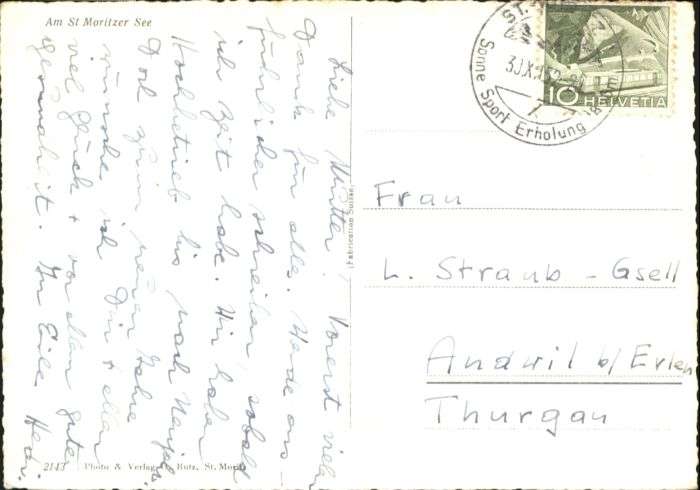 Am St Moritzer See
Liebe Mutter! Vorerst vielen
Dank für alles. Werde aus-
führlicher schreiben, sobald
ich Zeit habe. Wir haben
Hochbetrieb bis nach Neujahr.
Doch zum neuen Jahre
wünsche ich Dir + allen
viel Glück + vor allem gute
Gesundheit. In Eile Hedi.
2143 Photo & Verlag Rutz, St. Moritz
(Fabrication Suisse)
ST.
Sonne Sport Erholung
10 HELVETIA
Frau
L. Straub - Gsell
Andwil b/ Erlen
Thurgau